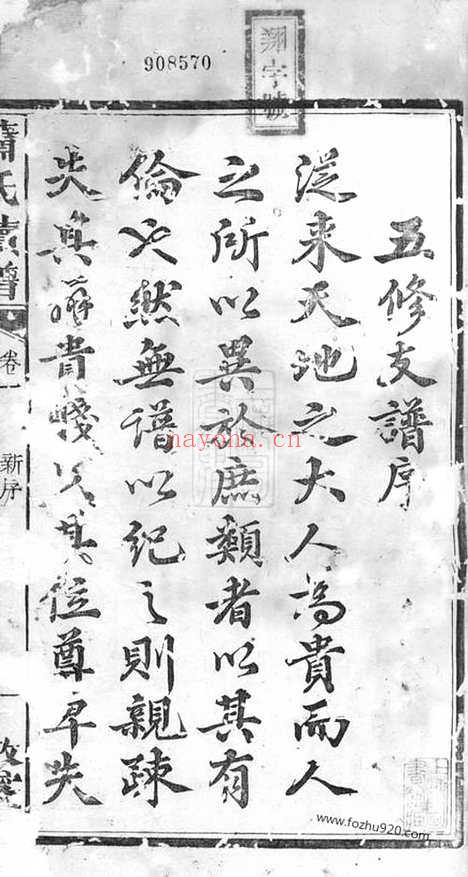 908570
翔字號
五修支譜序
從来天地之大人為貴而人
之所以異於庶類者以其有
倫也然無譜以紀之則親疎
失其辨貴賤失其位尊卑失
蕭氏續譜
卷一
新序
nayona.cn
www.fozhu920.com